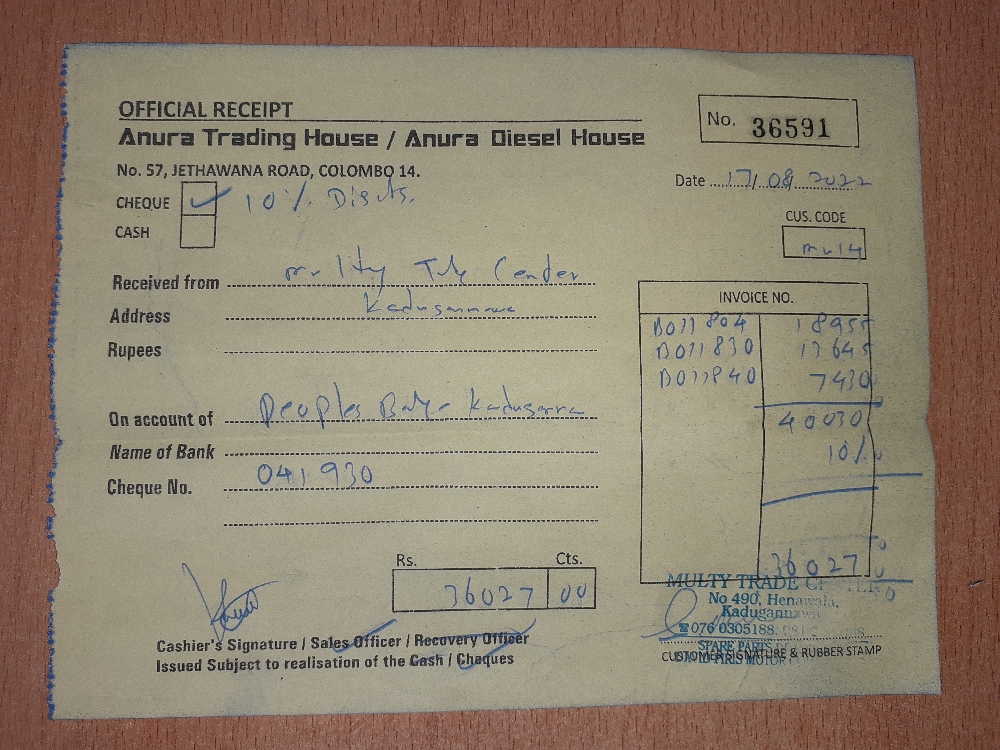 OFFICIAL RECEIPT
Anura Trading House / Anura Diesel House
No. 36591
No. 57, JETHAWANA ROAD, COLOMBO 14.
Date 17/08/2022
CHEQUE ✓ 10%
CASH
CUS. CODE
mu14
Received from multy Center
Address Kadugannawa
Rupees
INVOICE NO.
B011804 18955
B011830 13645
B011840 7430
40030
10%
36027
On account of Peoples
Name of Bank
Cheque No. 041930
Rs. Cts.
36027 00
Cashier's Signature / Sales Officer / Recovery Officer
Issued Subject to realisation of the Cash / Cheques
MULTY TRADE
No 490, Henawala,
Kadugannawa
☎076 0305188,
SPARE PARTS
CUSTOMER SIGNATURE & RUBBER STAMP